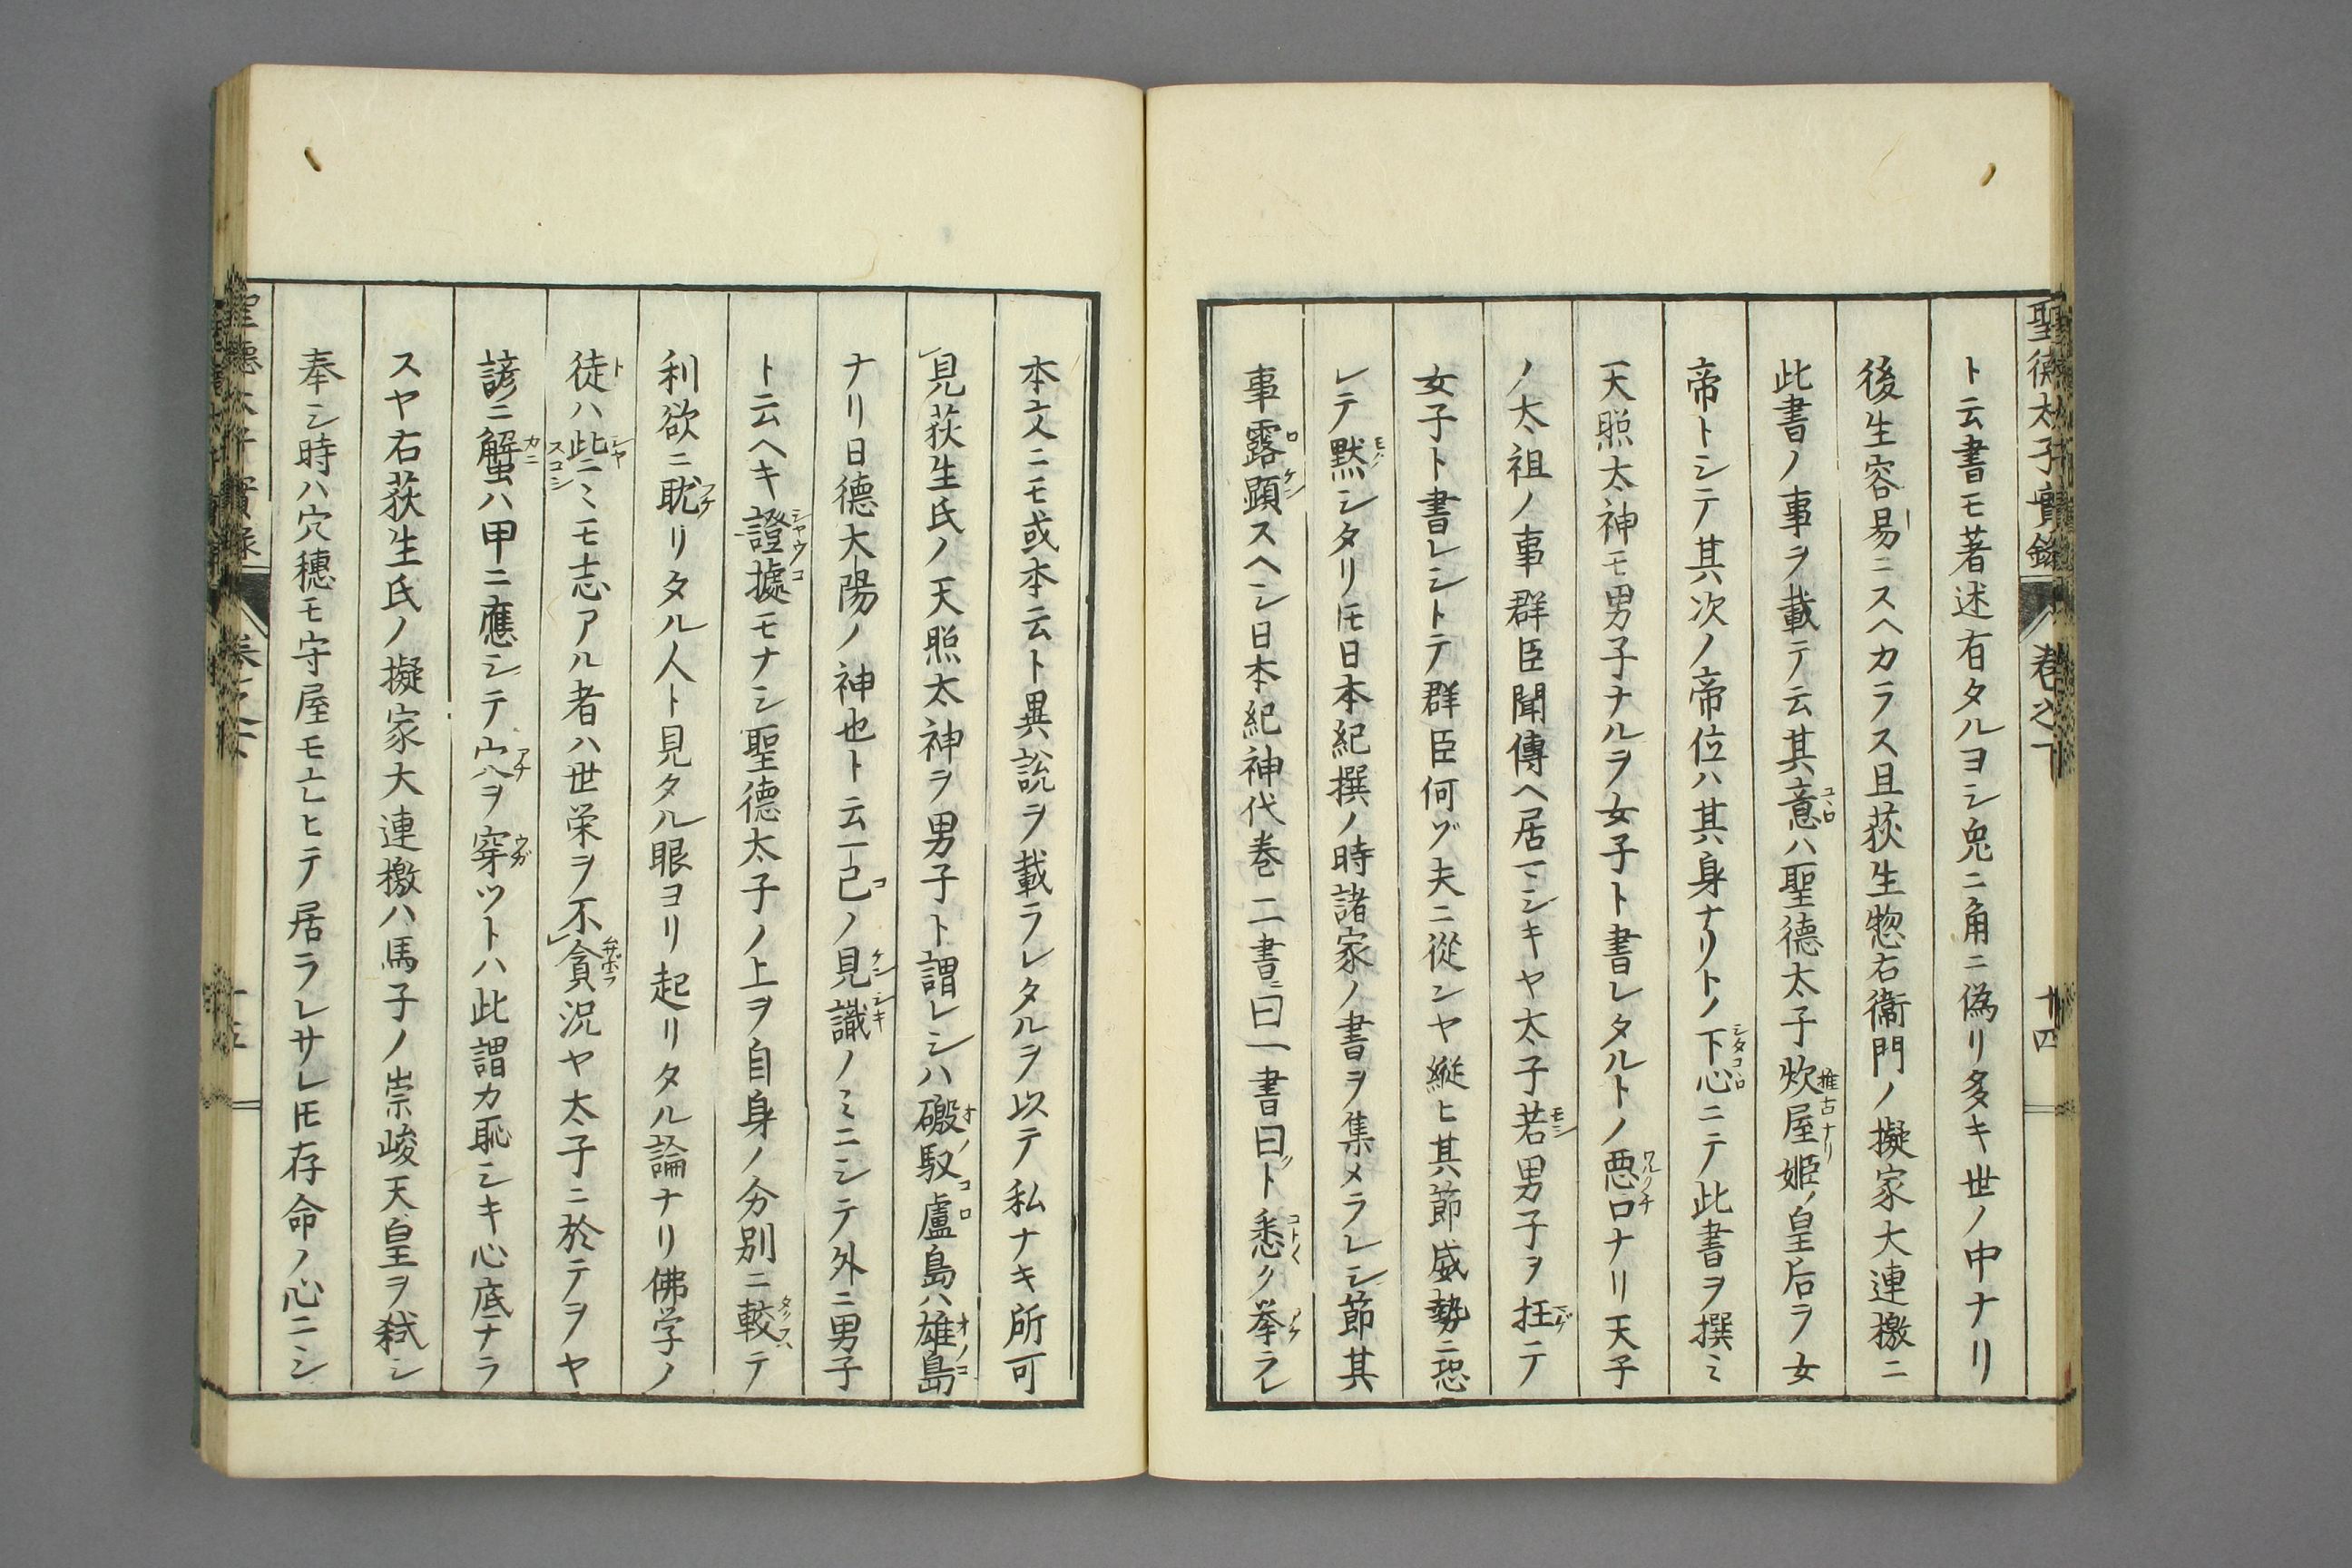 聖德太子實錄 卷之下 十四
ト云書モ著述有タルヨシ兎ニ角ニ偽リ多キ世ノ中ナリ
後生容易ニスヘカラス且荻生惣右衞門ノ擬家大連檄ニ
此書ノ事ヲ載テ云其意ハ聖德太子炊屋姫ノ皇后ヲ女
帝トシテ其次ノ帝位ハ其身ナリトノ下心ニテ此書ヲ撰ミ
天照太神モ男子ナルヲ女子ト書レタルトノ悪口ナリ天子
ノ太祖ノ事群臣聞傳ヘ居マシキヤ太子若男子ヲ抂テ
女子ト書レシトテ群臣何ヅ夫ニ從ンヤ縱ヒ其節威勢ニ恐
レテ黙シタリ𪜈日本紀撰ノ時諸家ノ書ヲ集メラレシ節其
事露顕スヘシ日本紀神代巻二書ニ曰一書曰ト悉ク挙ラレ
本文ニモ或本云ト異說ヲ載ラレタルヲ以テ私ナキ所可
見荻生氏ノ天照太神ヲ男子ト謂レシハ磤馭盧島ハ雄島
ナリ日德大陽ノ神也ト云一己ノ見識ノミニシテ外ニ男子
ト云ヘキ證據モナシ聖德太子ノ上ヲ自身ノ分別ニ較テ
利欲ニ耽リタル人ト見タル眼ヨリ起リタル論ナリ佛学ノ
徒ハ此ニミモ志アル者ハ世栄ヲ不貪況ヤ太子ニ於テヲヤ
諺ニ蟹ハ甲ニ應シテ穴ヲ穿ツトハ此謂カ恥シキ心底ナラ
スヤ右荻生氏ノ擬家大連檄ハ馬子ノ崇峻天皇ヲ弑シ
奉シ時ハ穴穗モ守屋モ亡ヒテ居ラレサレ𪜈存命ノ心ニシ